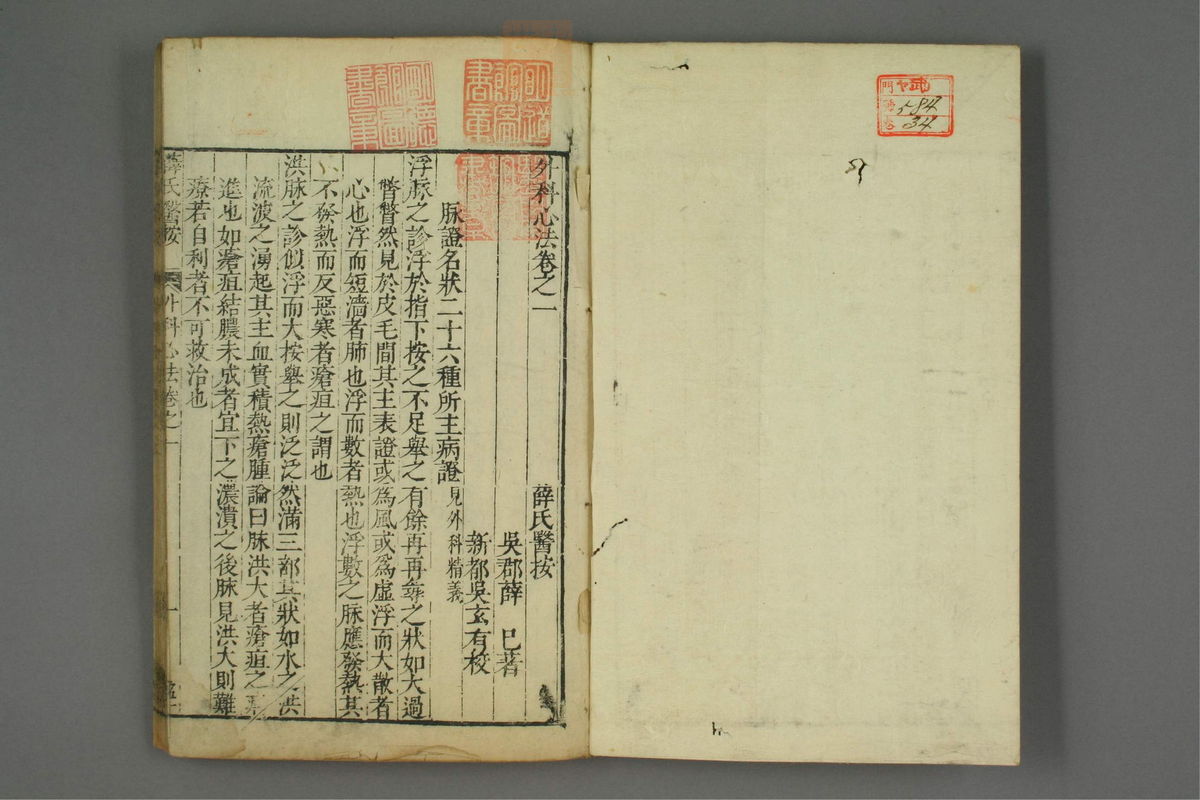 584
34
外科心法卷之一
薛氏醫按
吳郡薛 已著
新都吳玄有校
脉證名狀二十六種所主病證見外科精義
浮脉之診浮於指下按之不足舉之有餘再再尋之狀如太過
瞥瞥然見於皮毛間其主表證或為風或為虛浮而大散者
心也浮而短濇者肺也浮而數者熱也浮數之脉應發熱其
不發熱而反惡寒者瘡疽之謂也
洪脉之診似浮而大按舉之則泛泛然滿三部其狀如水之洪
流波之湧起其主血實積熱瘡腫論曰脉洪大者瘡疽之
進也如瘡疽結膿未成者宜下之濃潰之後脉見洪大則難
療若自利者不可救治也
薛氏醫按
外科心法卷之一
一